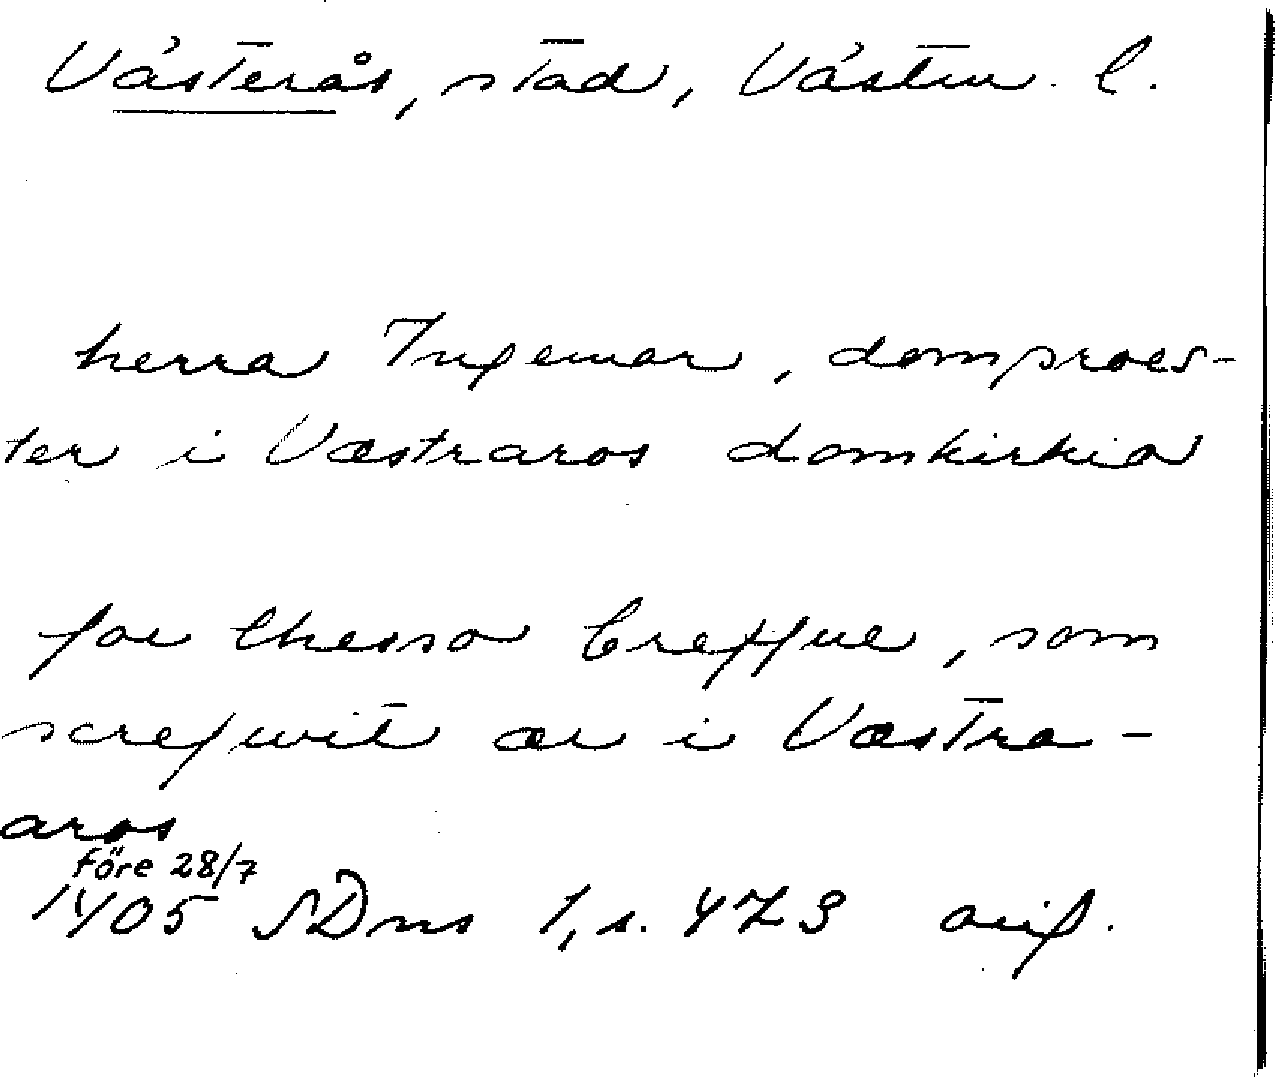 Västerås, stad, Västm. l.
herra Ingemar, domproes-
ter i Væstraros domkirkia
for thesso breffue, som
screfwit ær i Væstra-
aros
Före 28/7
1405 SDns 1, s. 473 orig.